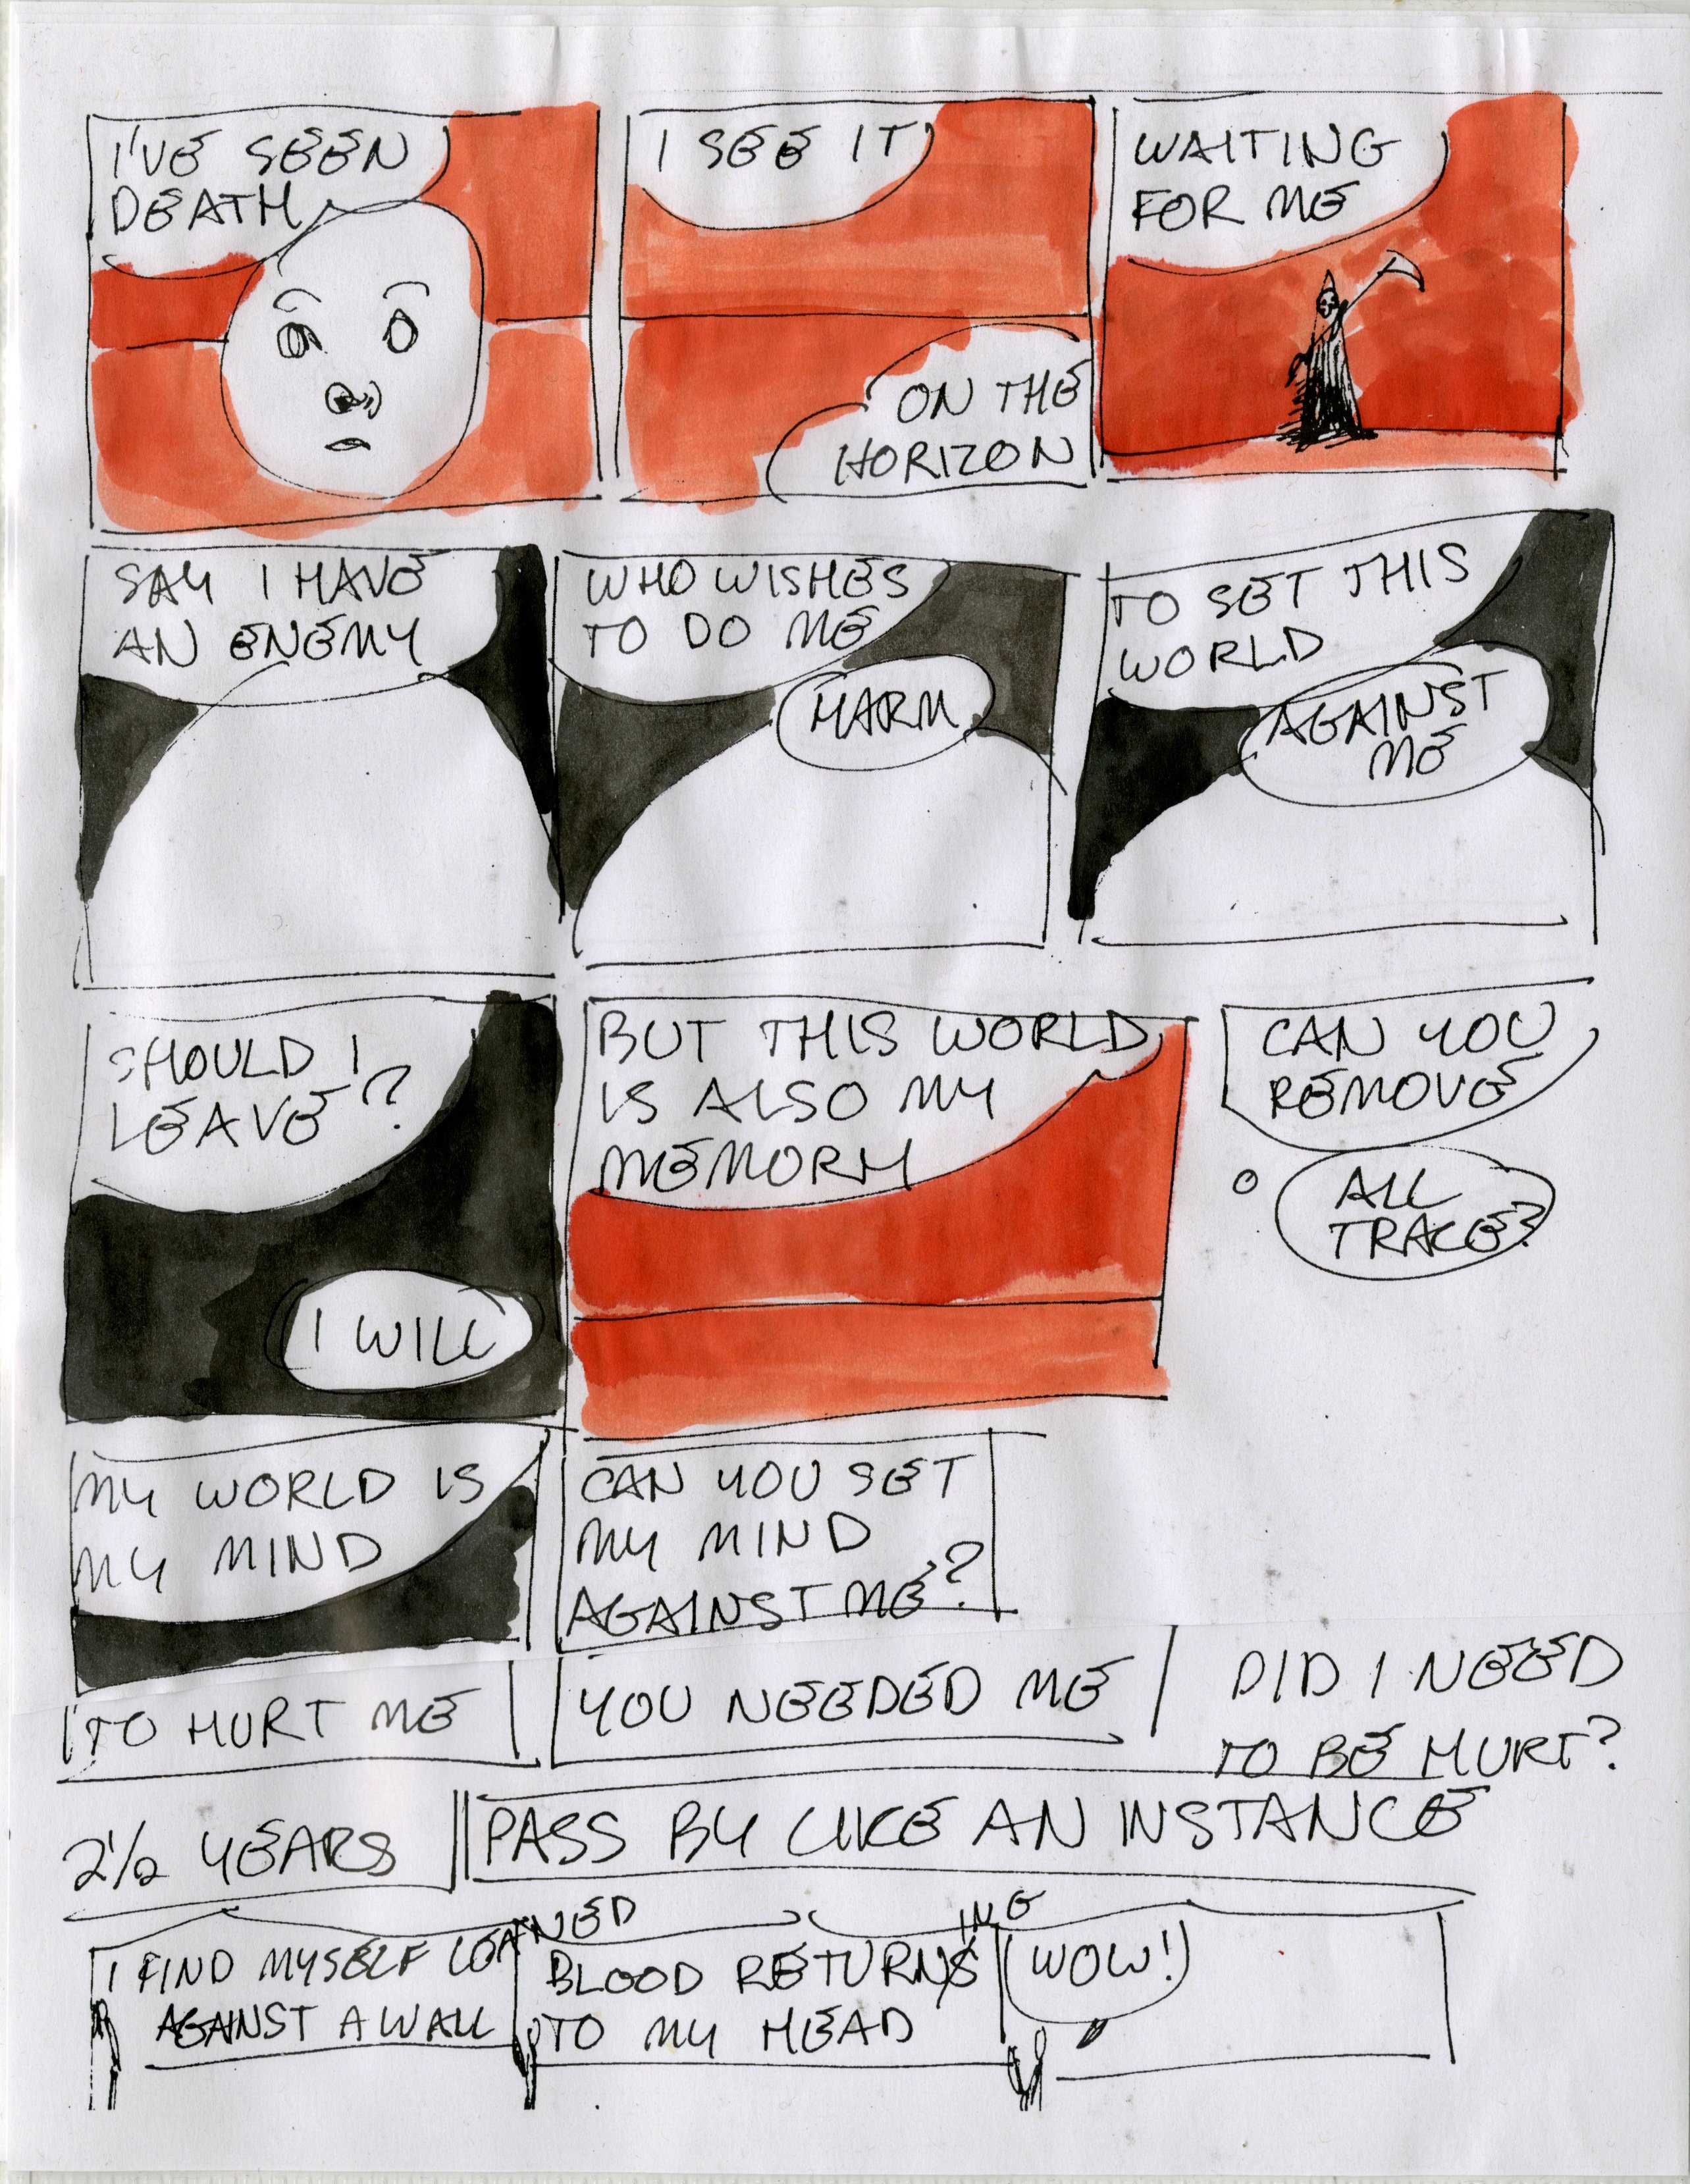 I'VE SEEN
DEATH
I SEE IT
ON THE
HORIZON
WAITING
FOR ME
SAY I HAVE
AN ENEMY
WHO WISHES
TO DO ME
HARM
TO SET THIS
WORLD
AGAINST
ME
SHOULD I
LEAVE?
I WILL
BUT THIS WORLD
IS ALSO MY
MEMORY
CAN YOU
REMOVE
ALL
TRACE?
MY WORLD IS
MY MIND
CAN YOU SET
MY MIND
AGAINST ME?
TO HURT ME
YOU NEEDED ME
DID I NEED
TO BE HURT?
2½ YEARS
PASS BY LIKE AN INSTANCE
I FIND MYSELF LEANED
AGAINST A WALL
BLOOD RETURNING
TO MY HEAD
WOW!